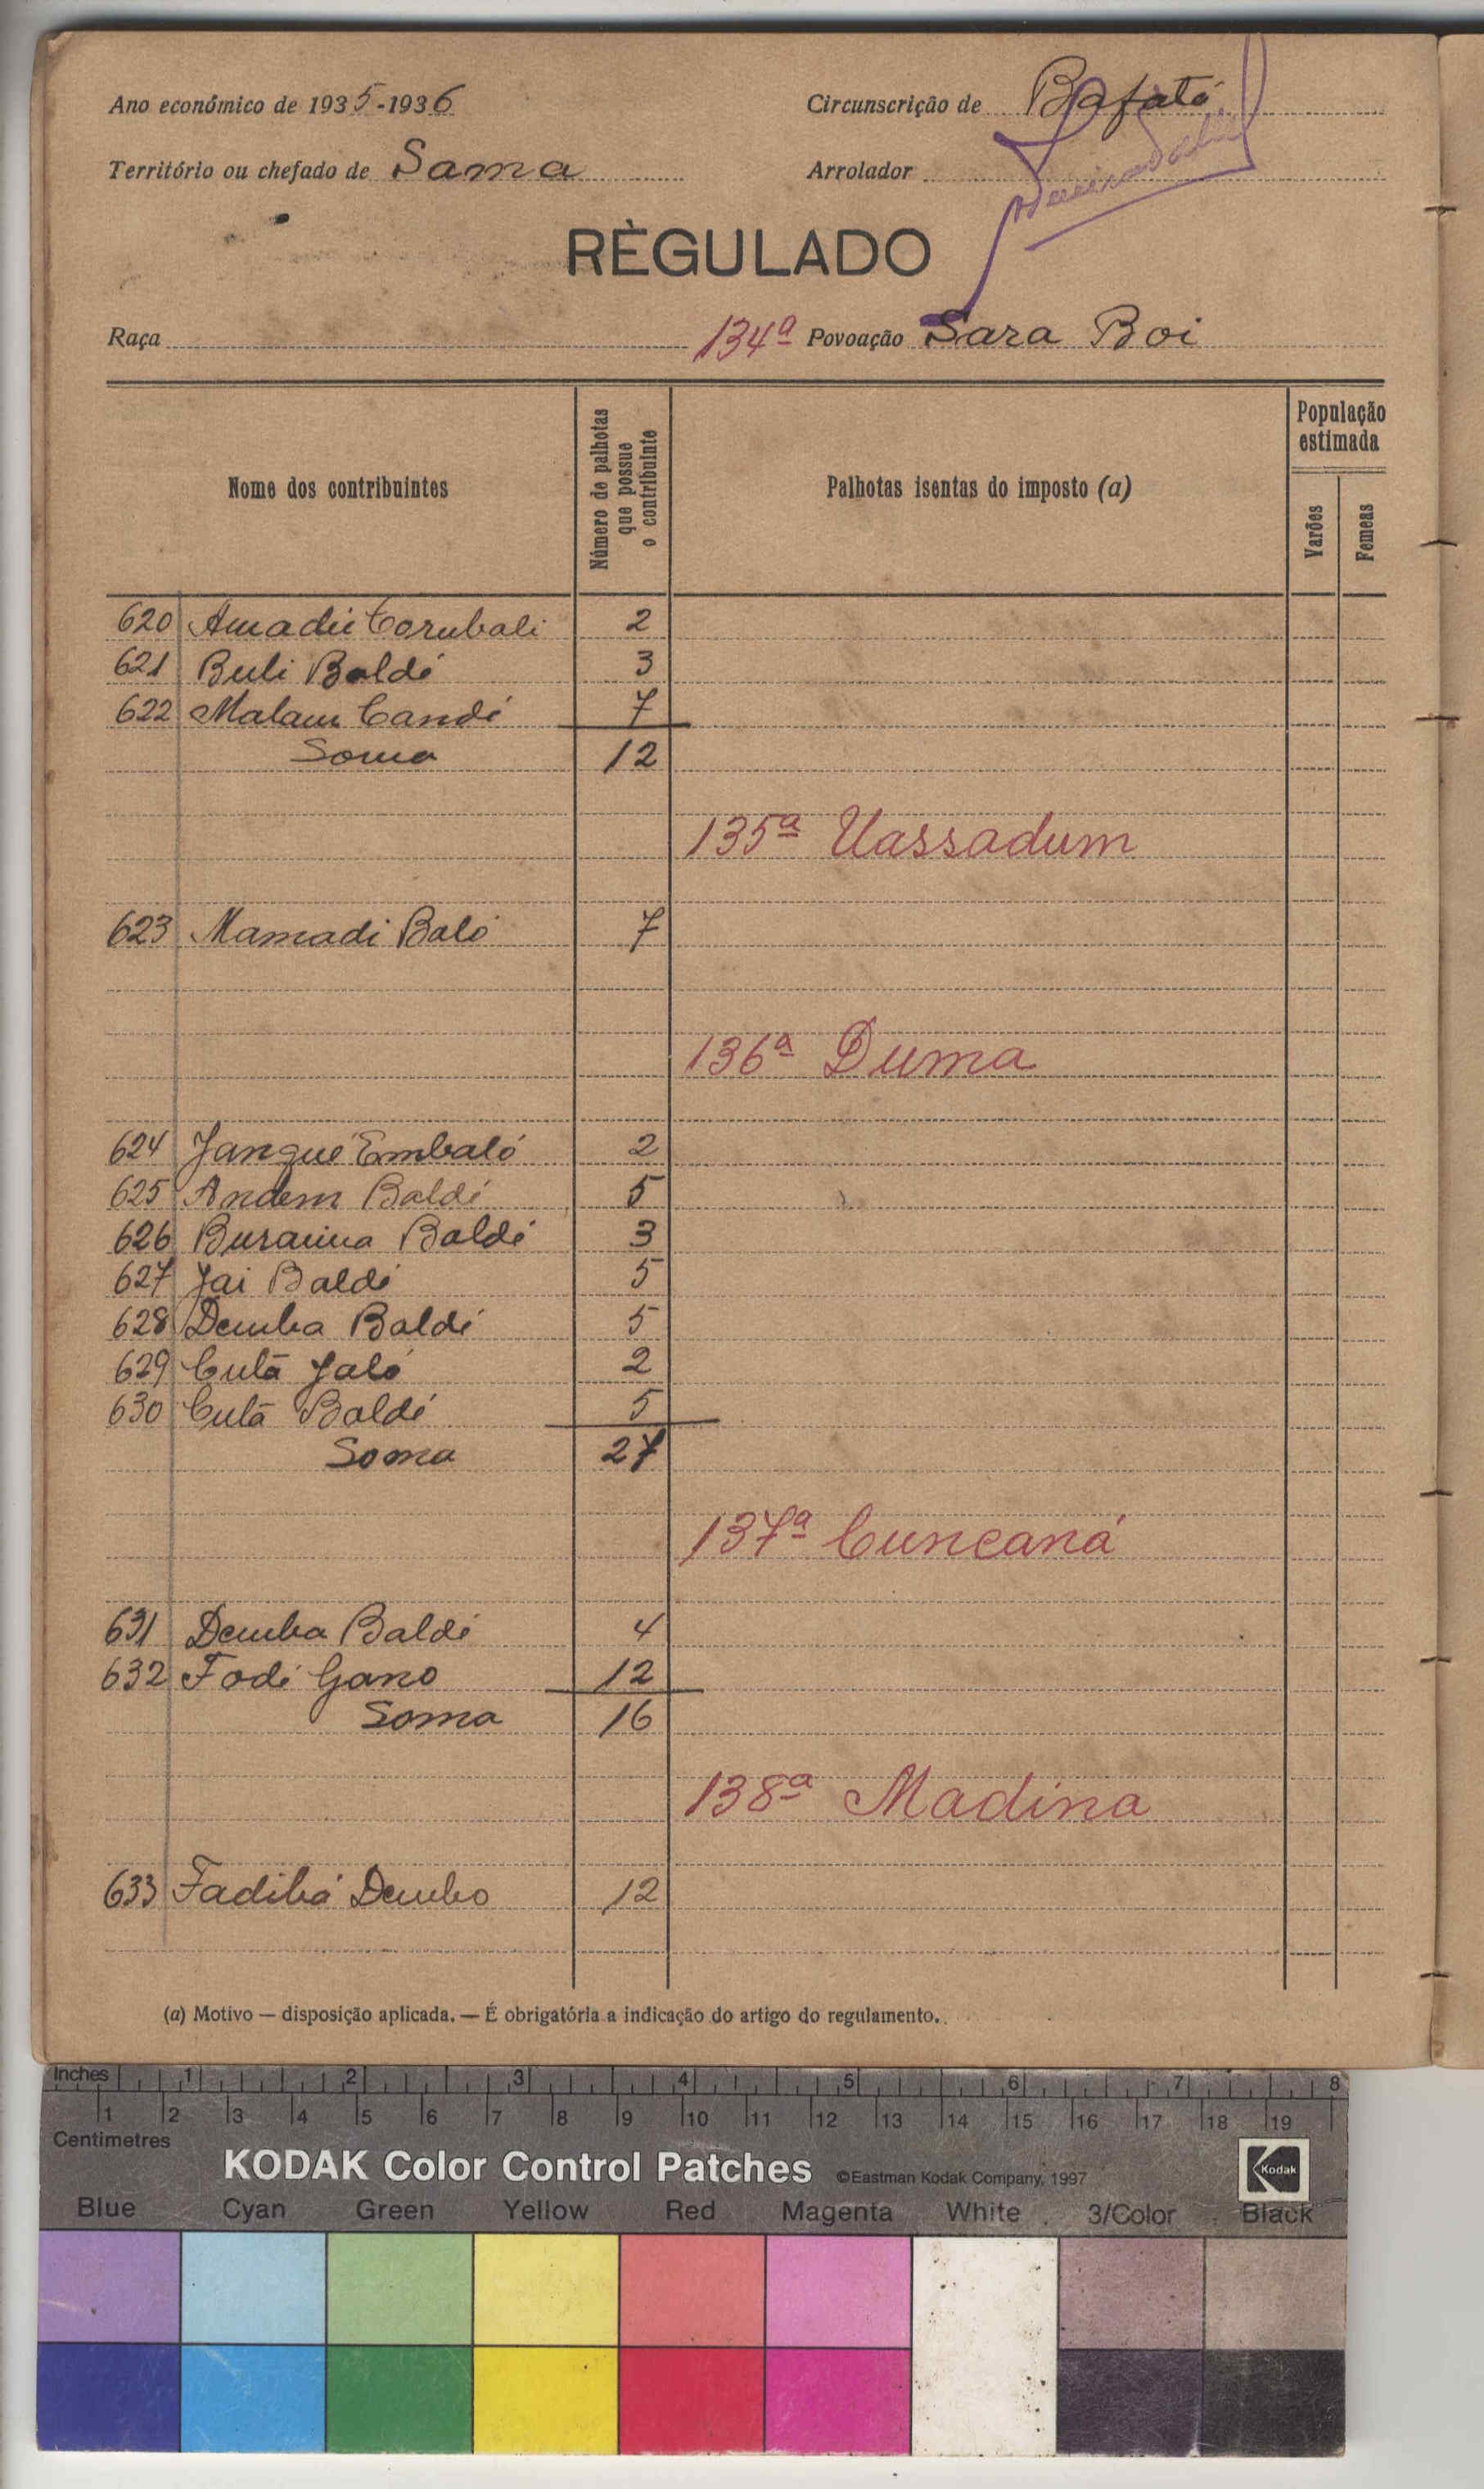 Ano económico de 1935-1936
Circunscrição de Bafatá
Território ou chefado de Sama
Arrolador
RÈGULADO
Raça
134ª Povoação Sara Boi
Nome dos contribuintes
Número de palhotas que possue o contribuinte
Palhotas isentas do imposto (a)
População estimada
Varões
Femeas
620 Amadú Corubali 2
621 Buli Baldé 3
622 Malam Candé 7
Soma 12
135ª Uassadum
623 Mamadi Baló 7
136ª Duma
624 Jangué Embaló 2
625 Andem Baldé 5
626 Buraima Baldé 3
627 Jai Baldé 5
628 Demba Baldé 5
629 Cutā Jaló 2
630 Cutā Baldé 5
Soma 27
137ª Cuncaná
631 Demba Baldé 4
632 Fodé Gano 12
Soma 16
138ª Madina
633 Fadibá Dembo 12
(a) Motivo — disposição aplicada. — É obrigatória a indicação do artigo do regulamento.
Inches 1 2 3 4 5 6 7 8
1 2 3 4 5 6 7 8 9 10 11 12 13 14 15 16 17 18 19
Centimetres
KODAK Color Control Patches ©Eastman Kodak Company, 1997 Kodak
Blue Cyan Green Yellow Red Magenta White 3/Color Black